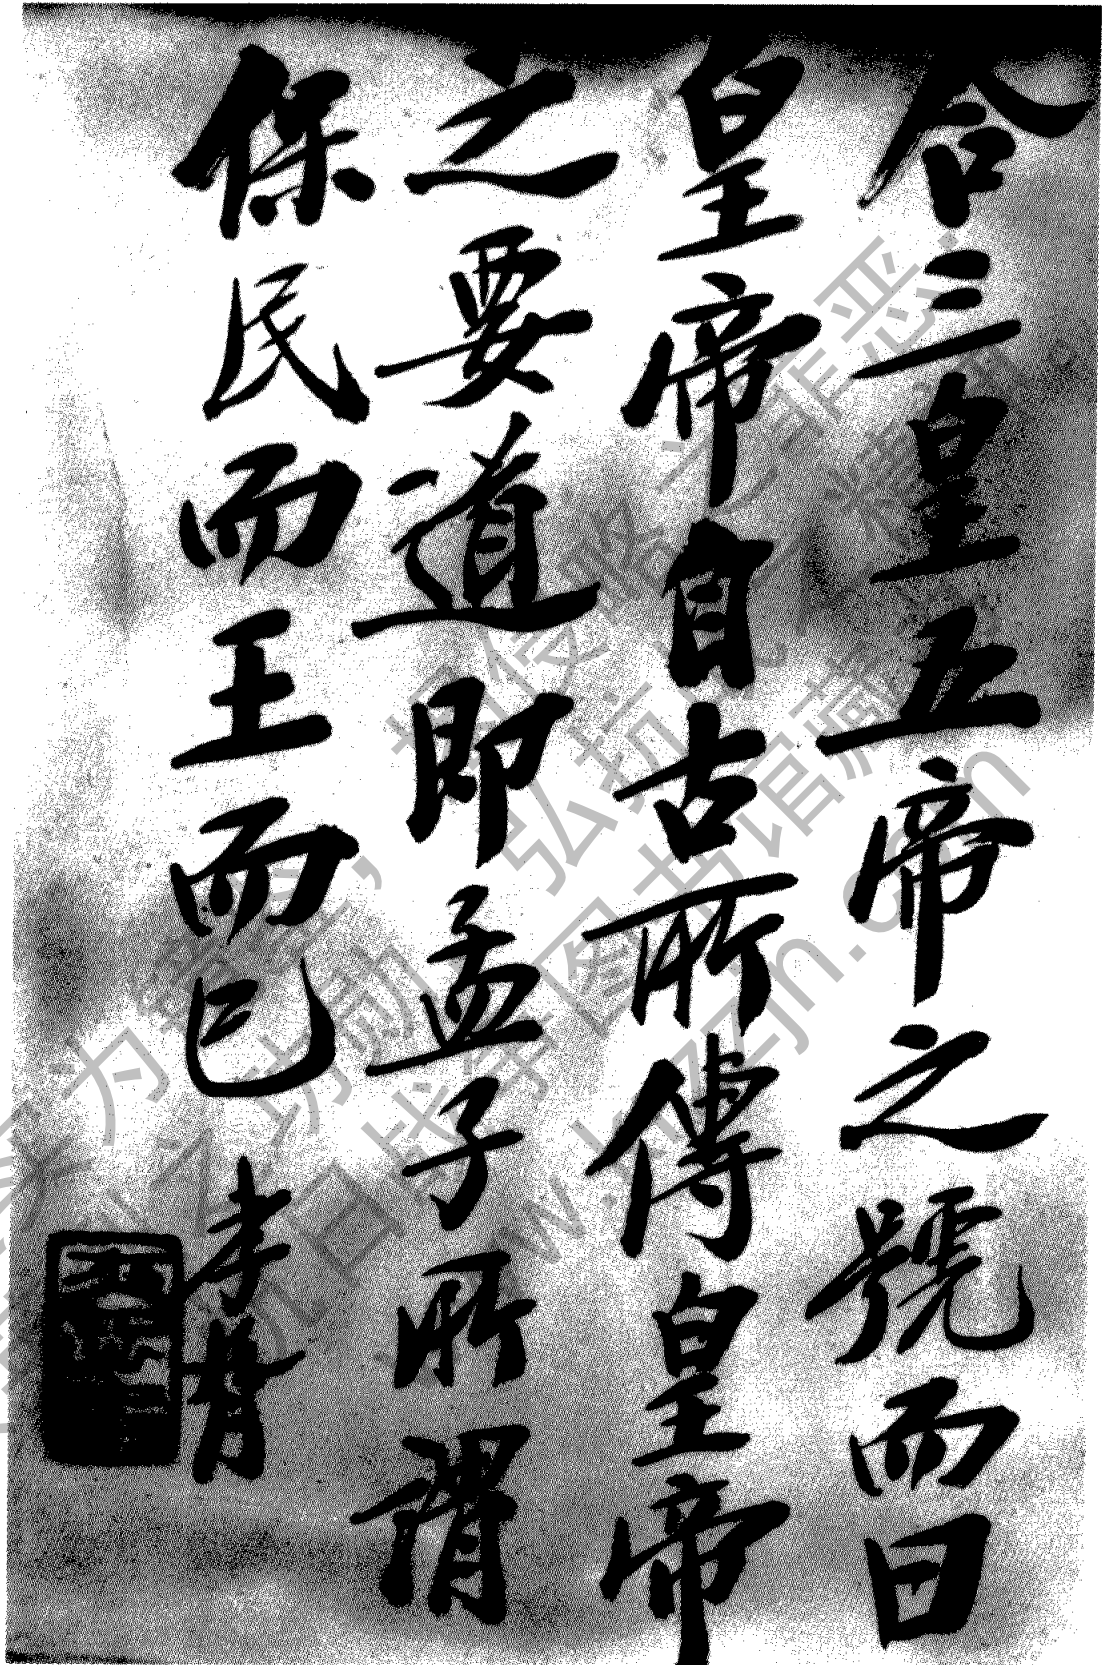 合三皇五帝之號而曰
皇帝自古所傳皇帝
之要道即孟子所謂
保民而王而已 李謩